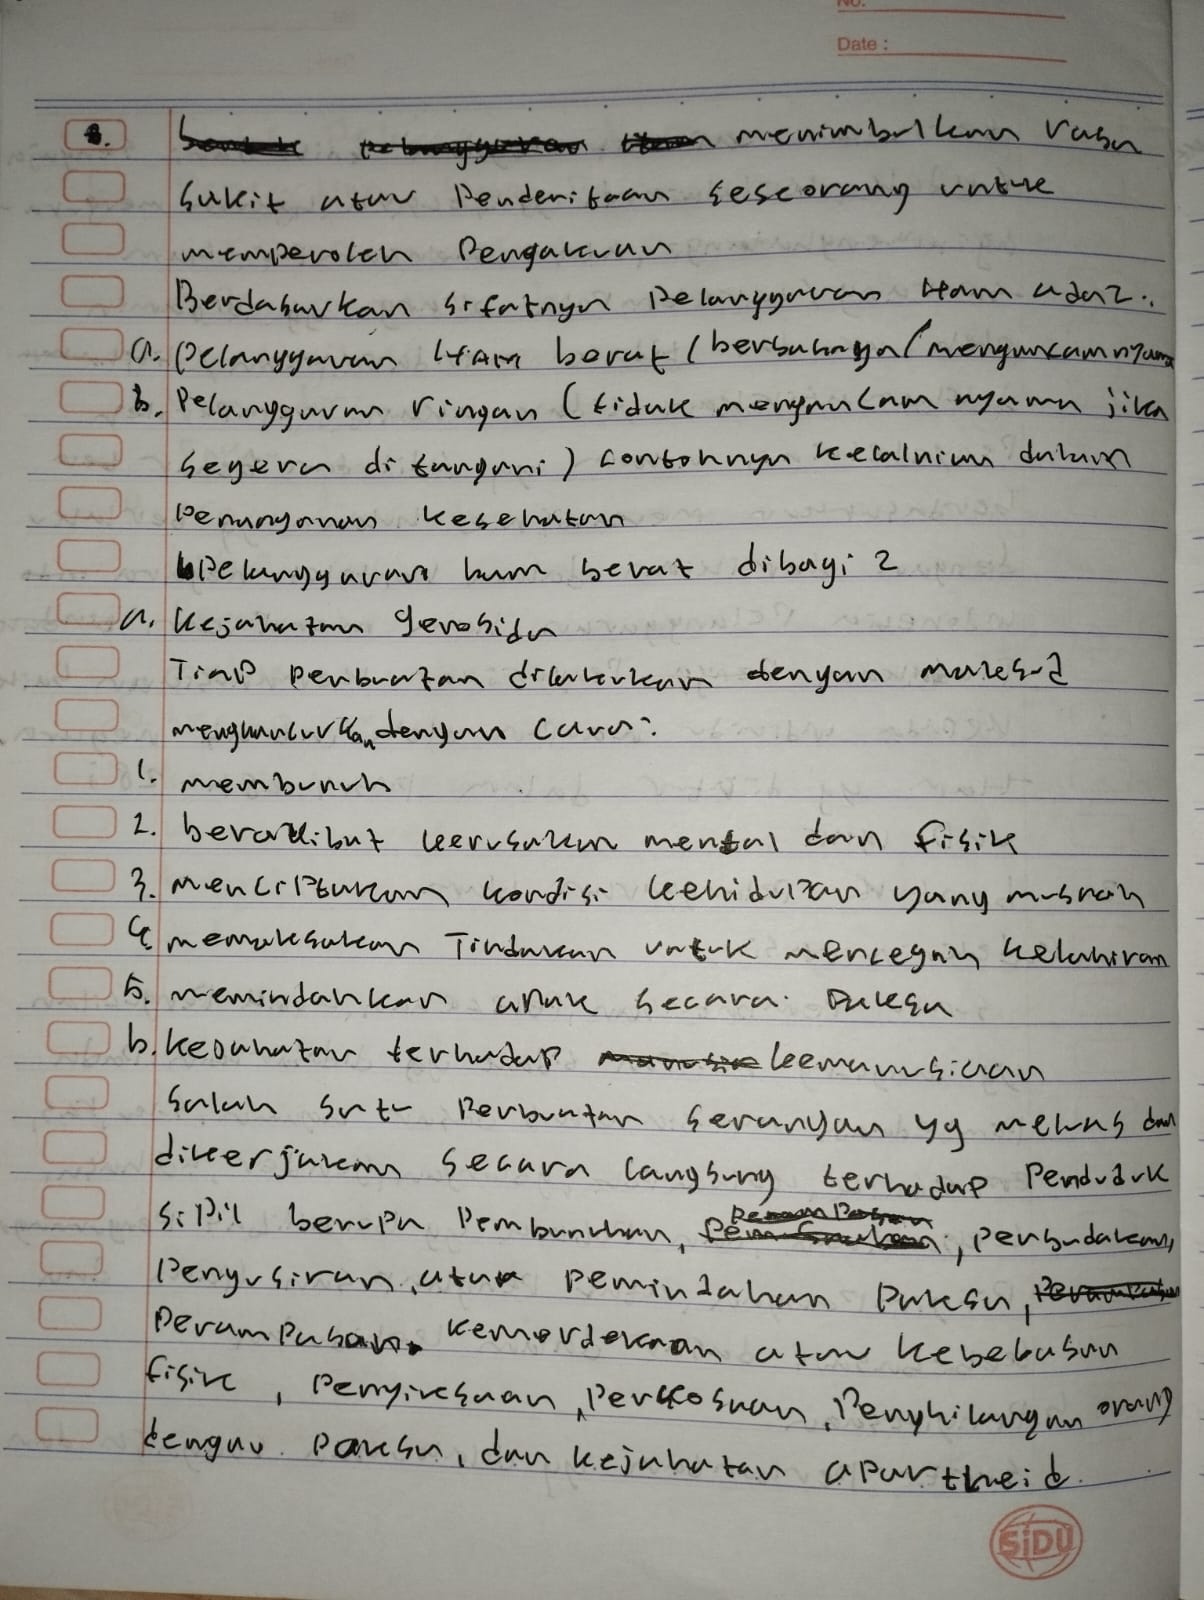 No.
Date :
menimbulkan rasa
sakit atau Penderitaan seseorang untuk
memperoleh Pengakuan
Berdasarkan sifatnya Pelanggaran Ham ada 2:
a. Pelanggaran HAM berat (berbahaya/mengancam nyawa
b. Pelanggaran ringan (tidak mengancam nyawa jika
segera di tangani) contohnya kecalnian dalam
Penanganan kesehatan
Pelanggaran ham berat dibagi 2
a. Kejahatan genosida
Tiap perbuatan dilakukan dengan maksud
menghancurkan dengan cara:
1. membunuh
2. berakibat kerusakan mental dan fisik
3. menciptakan kondisi kehidupan yang musnah
4. memaksakan Tindakan untuk mencegah kelahiran
5. memindahkan anak secara Paksa
b. kejahatan terhadap kemanusiaan
Salah satu Perbuatan serangan yg meluas dan
dikerjakan secara langsung terhadap Penduduk
sipil berupa Pembunuhan, , perbudakan,
Pengusiran atau Pemindahan Paksa,
Perampasan kemerdekaan atau kebebasan
fisik, Penyiksaan, Perkosaan, Penghilangan orang
dengan Paksa, dan kejahatan apartheid.
SiDU